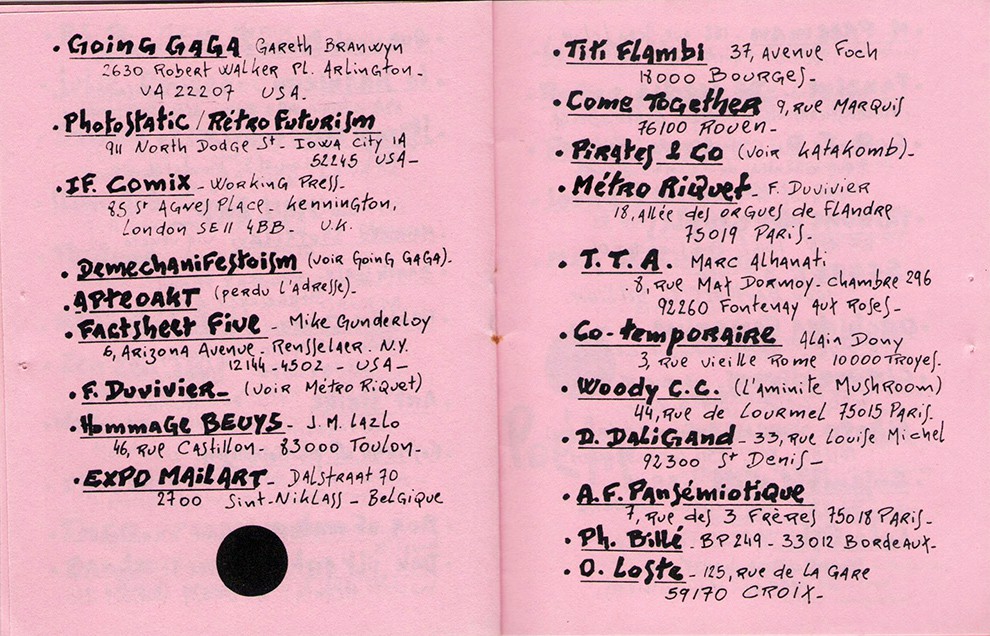 • Going GAGA Gareth Branwyn
2630 Robert Walker Pl. Arlington_
VA 22207 USA_
• PhotoStatic / Rétro Futurism
911 North Dodge St_ Iowa City IA
52245 USA_
• IF. Comix _ Working Press_
85 St Agnes Place_ Kennington,
London SE11 4BB_ U.K.
• Demechanifestoism (voir Going GAGA)_
• APTEOAKT (perdu l'adresse)_
• Factsheet Five _ Mike Gunderloy
6, Arizona Avenue_ Rensselaer_ N.Y.
12144_4502 _ USA_
• F. Duvivier_ (voir Métro Riquet)
• Hommage BEUYS_ J.M. Lazlo
46, rue Castillon_ 83000 Toulon_
• EXPO MAIL ART_ Dalstraat 70
2700 Sint-Niklass_ Belgique
• Titi Flambi 37, Avenue Foch
18000 BOURGES_
• Come Together 9, rue Marquis
76100 Rouen_
• Pirates & Co (voir Katakomb)_
• Métro Riquet_ F. Duvivier
18, allée des orgues de Flandre
75019 Paris_
• T.T.A. Marc Alhanati
8, rue Max Dormoy_ chambre 296
92260 Fontenay aux Roses_
• Co-temporaire Alain Dony
3, rue vieille Rome 10000 Troyes.
• Woody C.C. (L'aminite Mushroom)
44, rue de Lourmel 75015 Paris_
• D. Daligand_ 33, rue Louise Michel
92300 St Denis_
• A.F. Pansémiotique
7, rue des 3 Frères 75018 Paris_
• Ph. Billé_ BP 249_ 33012 Bordeaux_
• O. Loste_ 125, rue de la Gare
59170 CROIX_